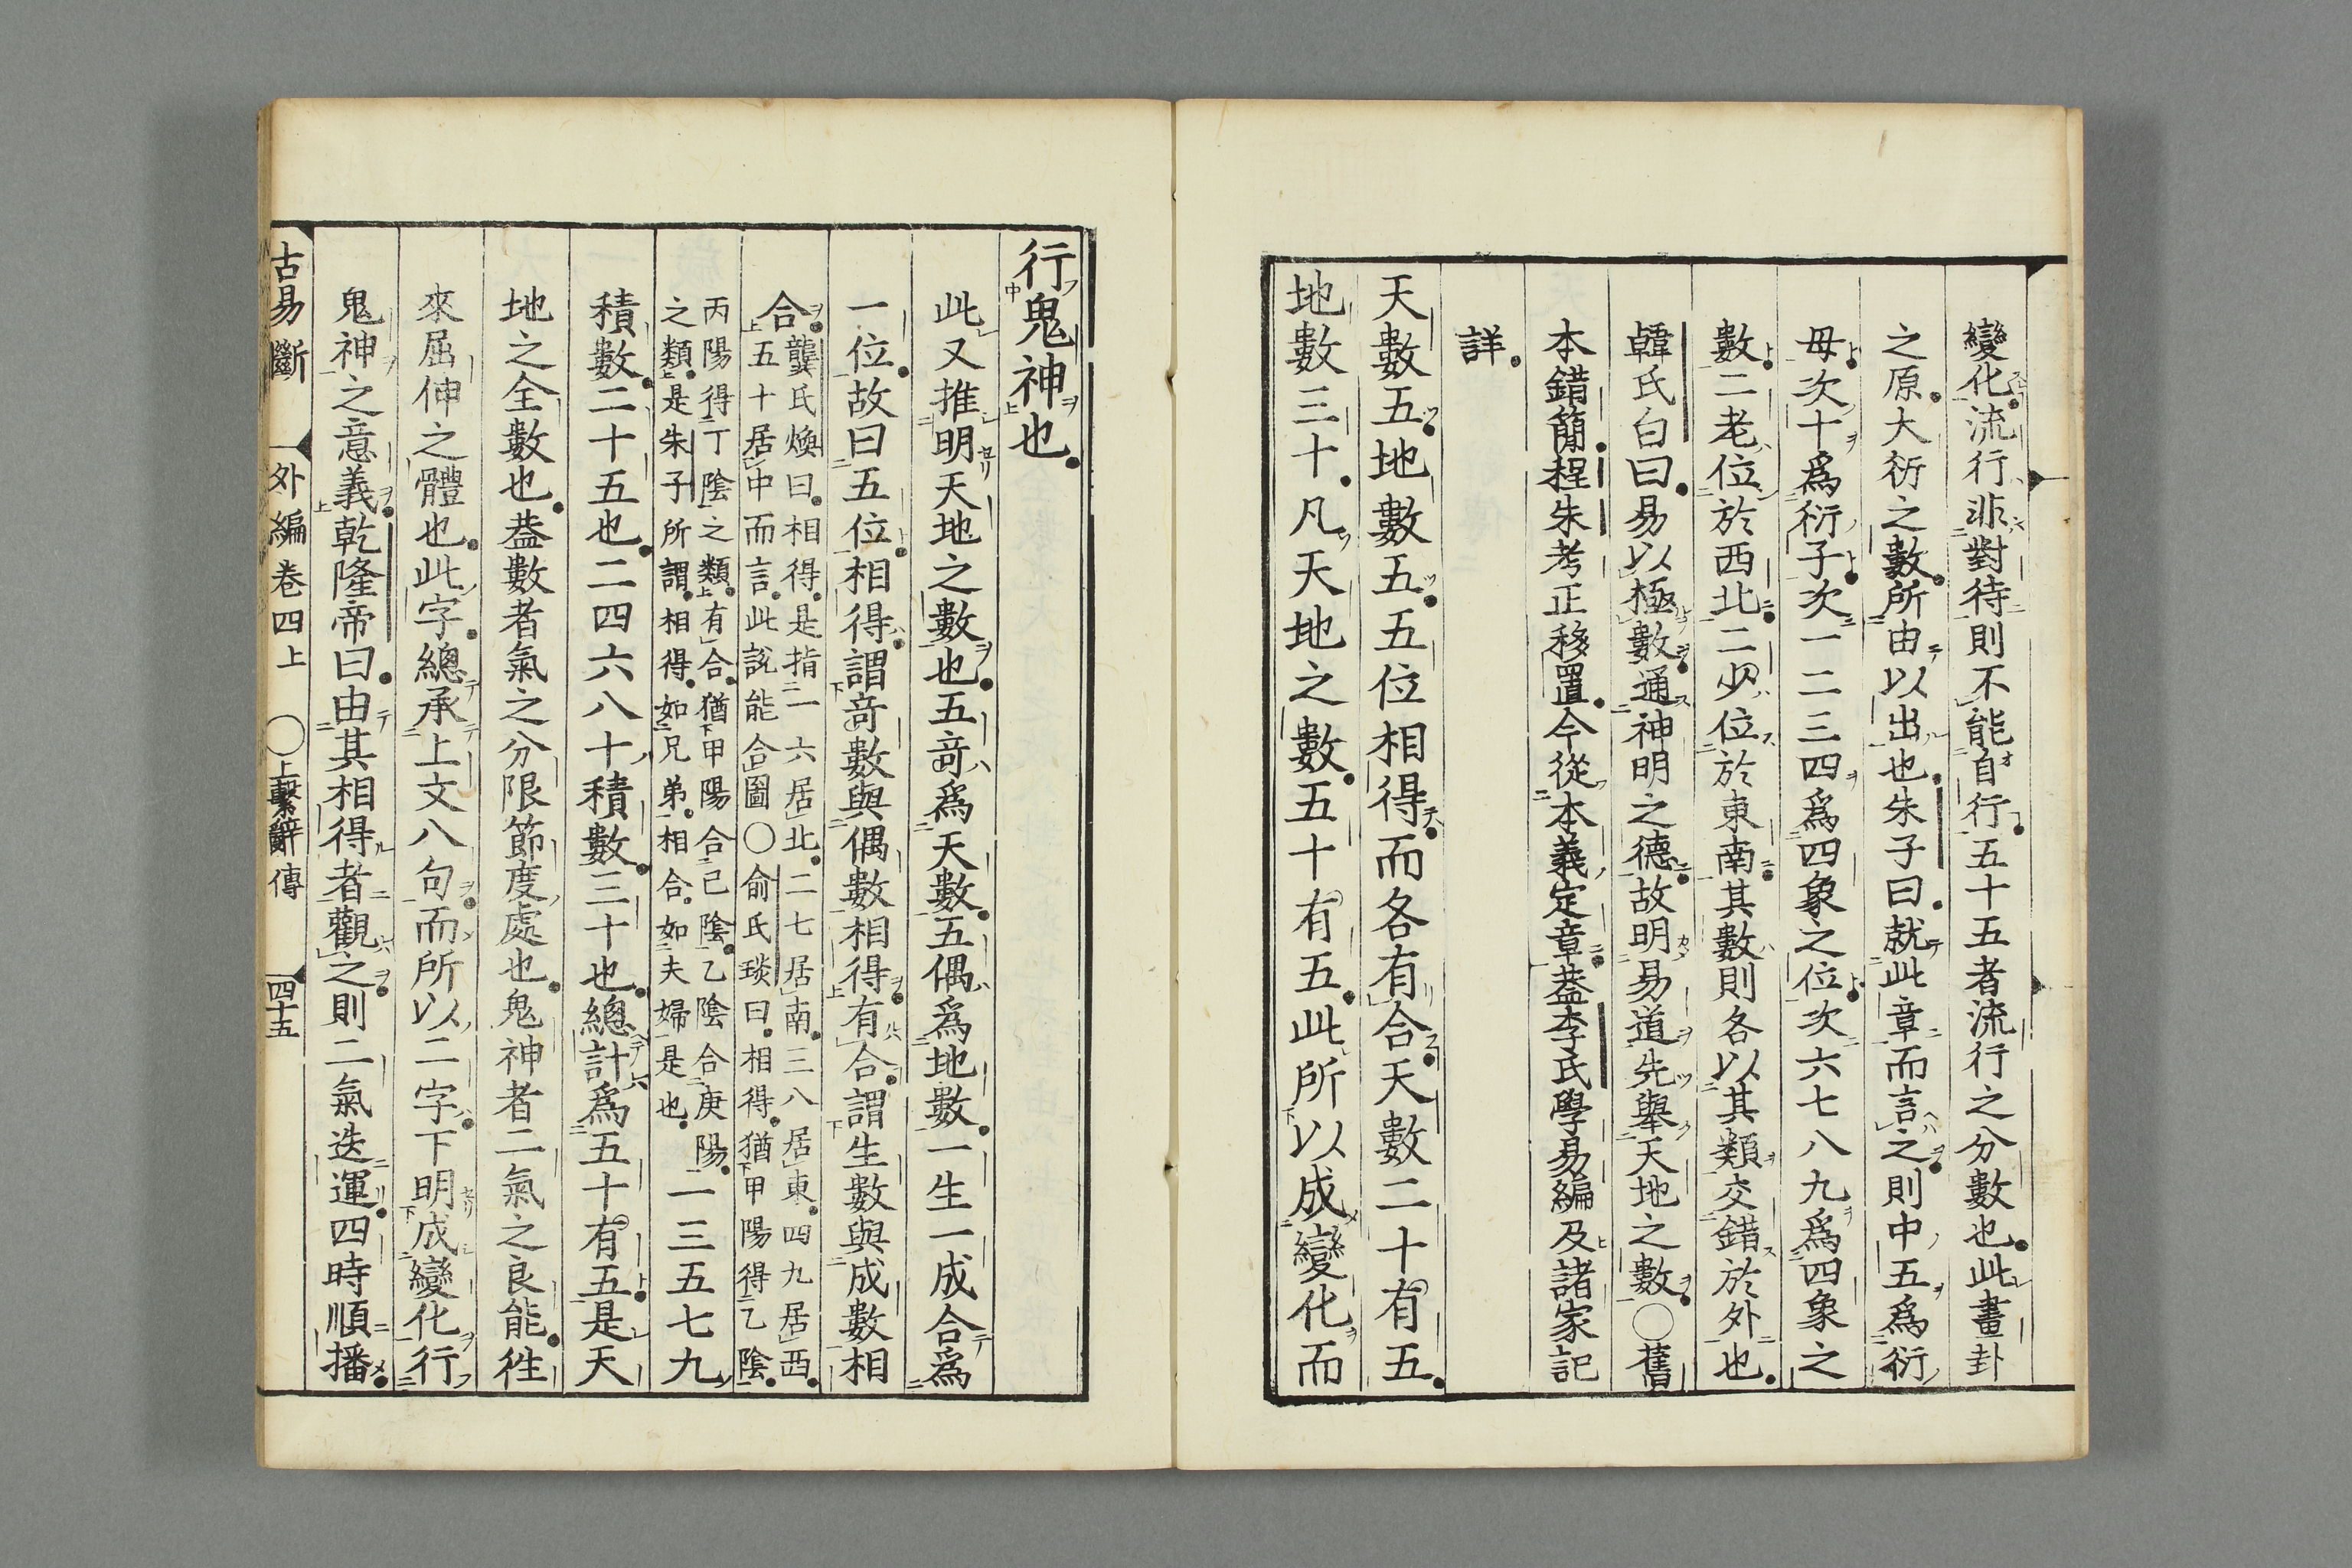 變化流行非對待則不能自行五十五者流行之分數也此畫卦
之原大衍之數所由以出也朱子曰就此章而言之則中五爲衍
母次十爲衍子次一二三四爲四象之位次六七八九爲四象之
數二老位於西北二少位於東南其數則各以其類交錯於外也
韓氏白曰易以極數通神明之德故明易道先舉天地之數○舊
本錯簡程朱考正移置今從本義定章葢李氏學易編及諸家記
詳
天數五地數五五位相得而各有合天數二十有五
地數三十凡天地之數五十有五此所以成變化而
行鬼神也
此又推明天地之數也五竒爲天數五偶爲地數一生一成合爲
一位故曰五位相得謂竒數與偶數相得有合謂生數與成數相
合龔氏煥曰相得是指一六居北二七居南三八居東四九居西
五十居中而言此説能合圖○俞氏琰曰相得猶甲陽得乙陰
丙陽得丁陰之類有合猶甲陽合己陰乙陰合庚陽
之類是朱子所謂相得如兄弟相合如夫婦是也一三五七九
積數二十五也二四六八十積數三十也總計爲五十有五是天
地之全數也葢數者氣之分限節度處也鬼神者二氣之良能徃
來屈伸之體也此字總承上文八句而所以二字下明成變化行
鬼神之意義乾隆帝曰由其相得者觀之則二氣迭運四時順播
古易斷 外編卷四上 ○上繫辭傳 四十五